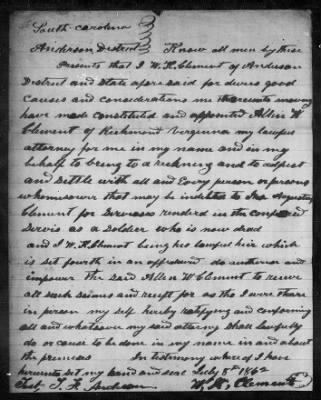 South carolina
Anderson District Know all men by these
Presents that I W. H. Clement of Anderson
District and State afore said for divers good
causes and considerations me thereunto moving
have made Constituted and appointed Allen W
Clement of Richmond Verginna my lawful
attorney for me in my name and in my
behalf to bring to a reckning and to adjust
and Settle with all and Every person or persons
whomsoever that may be indebted to Augustus
Clement for Services renderd in the Confederd
Servis as a Soldier who is now dead
and I W. H. Clement being his lawful heir which
is set fourth in an do authorise and
impower the said Allen W Clement to receve
all such and as tho I were there
in person my self hereby ratifying and conforming
all and whatsoever my said attorney Shall lawfully
do or cause to be done in my name in and about
the premises In testimony where of I have
hereunto set my hand and seal July 8th 1862
Test J. F. Anderson W. H. Clement